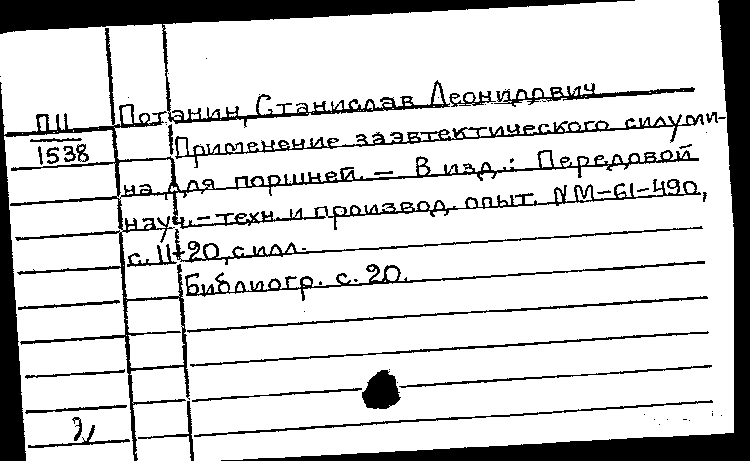 П11
1538
Потанин, Станислав Леонидович
Применение заэвтектического силуми-
на для поршней. — В изд.: Передовой
науч.-техн. и производ. опыт. №М-61-490,
с. 11-20, с илл.
Библиогр. с. 20.